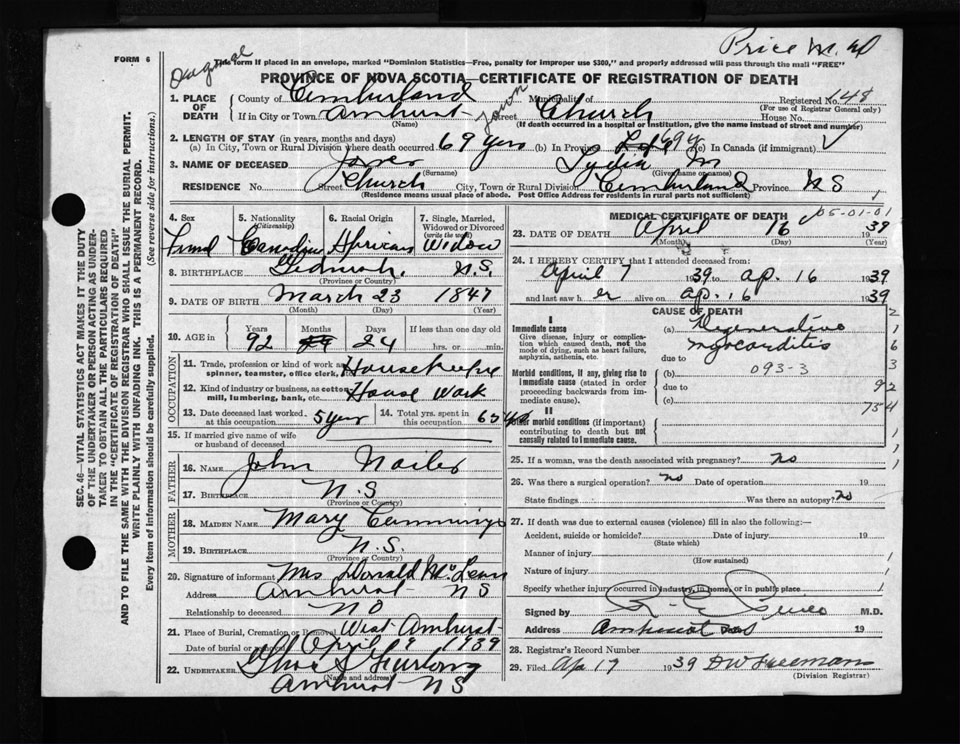 Price M.D
FORM 6
Original
This form if placed in an envelope, marked "Dominion Statistics—Free, penalty for improper use $300," and properly addressed will pass through the mail "FREE"
PROVINCE OF NOVA SCOTIA—CERTIFICATE OF REGISTRATION OF DEATH
1. PLACE OF DEATH County of Cumberland Municipality of Registered No. 148
(For use of Registrar General only)
If in City or Town Amherst town Street Church House No.
(Name) (If death occurred in a hospital or institution, give the name instead of street and number)
2. LENGTH OF STAY (in years, months and days)
(a) In City, Town or Rural Division where death occurred 69 years (b) In Province 69 y (c) In Canada (if immigrant)
3. NAME OF DECEASED Jones Lydia M
(Surname) (Given name or names)
RESIDENCE No. Street Church City, Town or Rural Division Cumberland Province N S
(Residence means usual place of abode. Post Office Address for residents in rural parts not sufficient)
4. Sex 5. Nationality (Citizenship) 6. Racial Origin 7. Single, Married, Widowed or Divorced (write the word)
Canadian African Widow
8. BIRTHPLACE N.S.
(Province or Country)
9. DATE OF BIRTH March 23 1847
(Month) (Day) (Year)
10. AGE in Years Months Days If less than one day old
92 24 hrs. or min.
OCCUPATION
11. Trade, profession or kind of work as spinner, teamster, office clerk, etc. Housekeeper
12. Kind of industry or business, as cotton mill, lumbering, bank, etc. House Work
13. Date deceased last worked at this occupation 5 year 14. Total yrs. spent in this occupation 65 yrs
15. If married give name of wife or husband of deceased
FATHER
16. NAME John
17. BIRTHPLACE N.S
(Province or Country)
MOTHER
18. MAIDEN NAME Mary Cummings
19. BIRTHPLACE N.S.
(Province or Country)
20. Signature of informant Mrs Donald McLean
Address Amherst N S
Relationship to deceased NO
21. Place of Burial, Cremation or Removal West Amherst
Date of burial or removal April 1939
22. UNDERTAKER Furlong
(Name and address)
Amherst N S
MEDICAL CERTIFICATE OF DEATH 05-01-01
23. DATE OF DEATH April 16 1939
(Month) (Day) (Year)
24. I HEREBY CERTIFY that I attended deceased from:
April 7 1939 to Ap. 16 1939
and last saw h er alive on Ap. 16 1939
CAUSE OF DEATH
I
Immediate cause (a) Degenerative
Give disease, injury or complication which caused death, not the mode of dying, such as heart failure, asphyxia, asthenia, etc. myocarditis
due to
Morbid conditions, if any, giving rise to immediate cause (stated in order proceeding backwards from immediate cause). (b) 093-3
due to
(c)
II
Other morbid conditions (if important) contributing to death but not causally related to immediate cause.
2
1
6
3
92
754
25. If a woman, was the death associated with pregnancy? No
26. Was there a surgical operation? No Date of operation 19
State findings Was there an autopsy? No
27. If death was due to external causes (violence) fill in also the following:—
Accident, suicide or homicide? Date of injury 19
(State which)
Manner of injury
(How sustained)
Nature of injury
Specify whether injury occurred in industry, in home, or in public place
Signed by M.D.
Address Amherst 19
28. Registrar's Record Number
29. Filed Ap 17 1939 Freeman
(Division Registrar)
SEC. 46—VITAL STATISTICS ACT MAKES IT THE DUTY
OF THE UNDERTAKER OR PERSON ACTING AS UNDER-
TAKER TO OBTAIN ALL THE PARTICULARS REQUIRED
IN THE "CERTIFICATE OF REGISTRATION OF DEATH"
AND TO FILE THE SAME WITH THE DIVISION REGISTRAR WHO SHALL ISSUE THE BURIAL PERMIT.
WRITE PLAINLY WITH UNFADING INK. THIS IS A PERMANENT RECORD.
Every item of information should be carefully supplied. (See reverse side for instructions.)